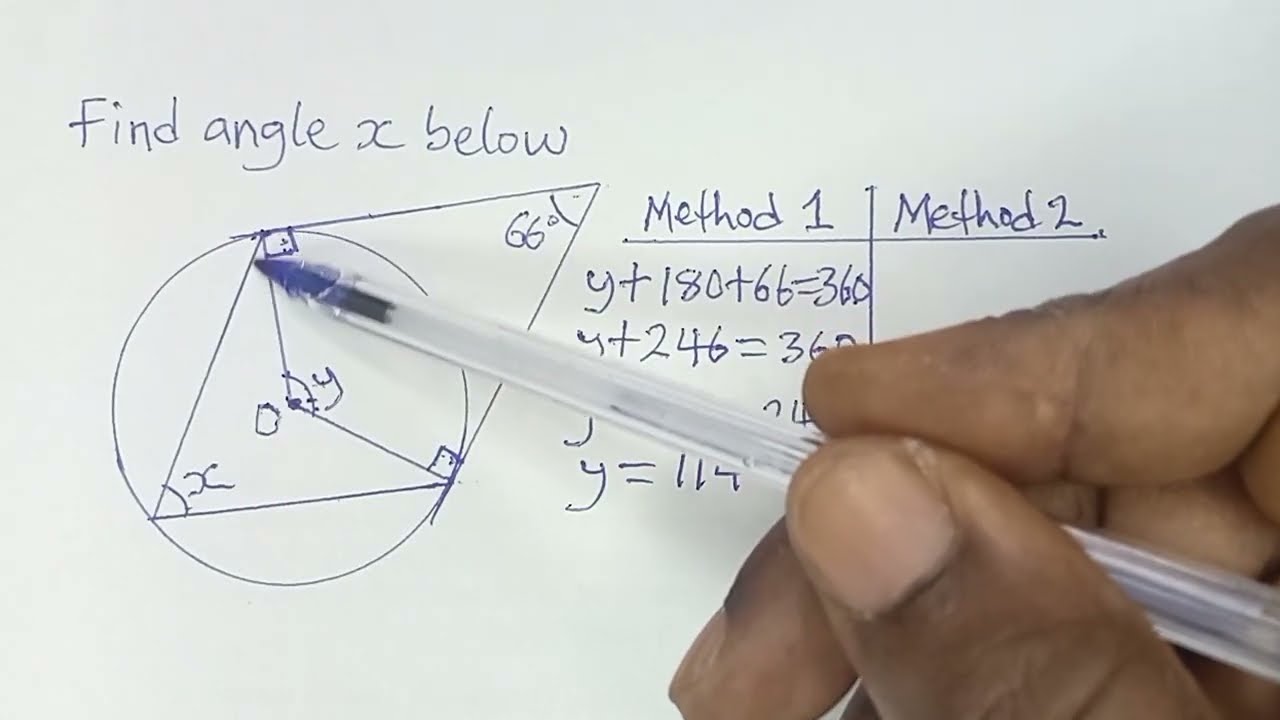 Find angle x below
66°
Method 1
Method 2
y+180+66=360
y+246=360
y
y=114
y
O
x